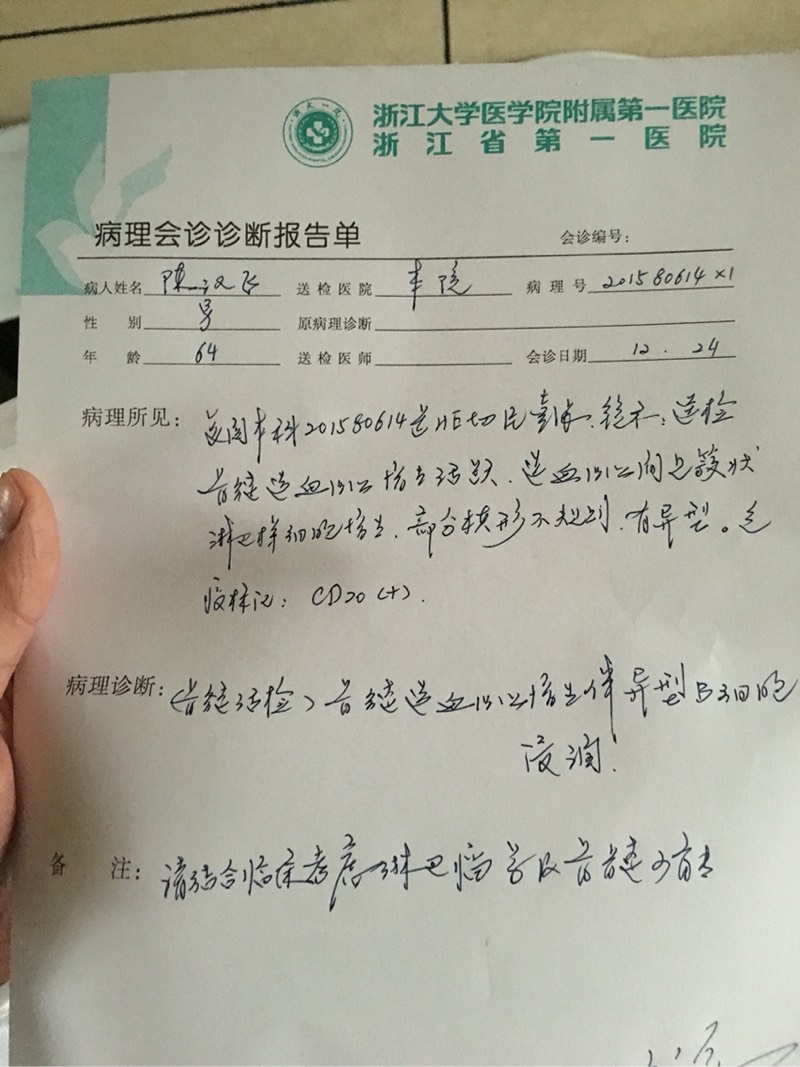 浙大一院
浙江大学医学院附属第一医院
浙江省第一医院
病理会诊诊断报告单
会诊编号：
病人姓名 陈汉 送检医院 本院 病理号 201580614×1
性别 男 原病理诊断
年龄 64 送检医师 会诊日期 12.24
病理所见： 复阅本科201580614送HE切片 示：送检
骨髓造血 增生活跃，造血 间见簇状
淋巴样细胞增生，部分核形不规则，有异型。免
疫标记：CD20（+）．
病理诊断：（骨髓活检）骨髓造血 增生伴异型B细胞
浸润！
备注：请结合临床考虑淋巴瘤 骨髓